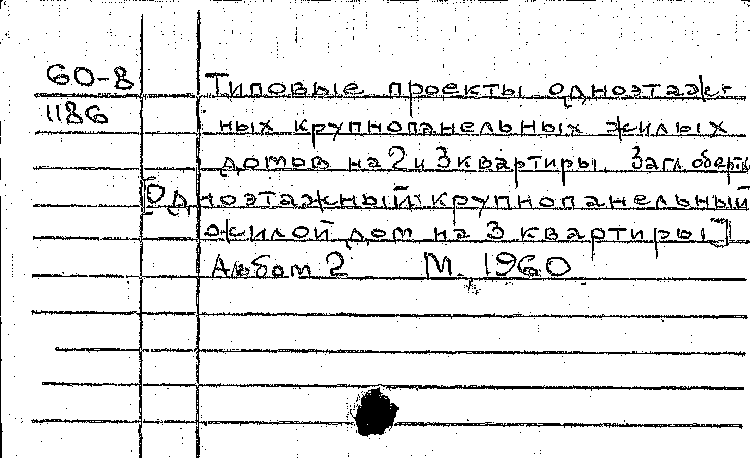 60-8 Типовые проекты одноэтаж-
1186 ных крупнопанельных жилых
домов на 2 и 3 квартиры. Загл. обертк
[Одноэтажный крупнопанельный
жилой дом на 3 квартиры]
Альбом 2 М. 1960